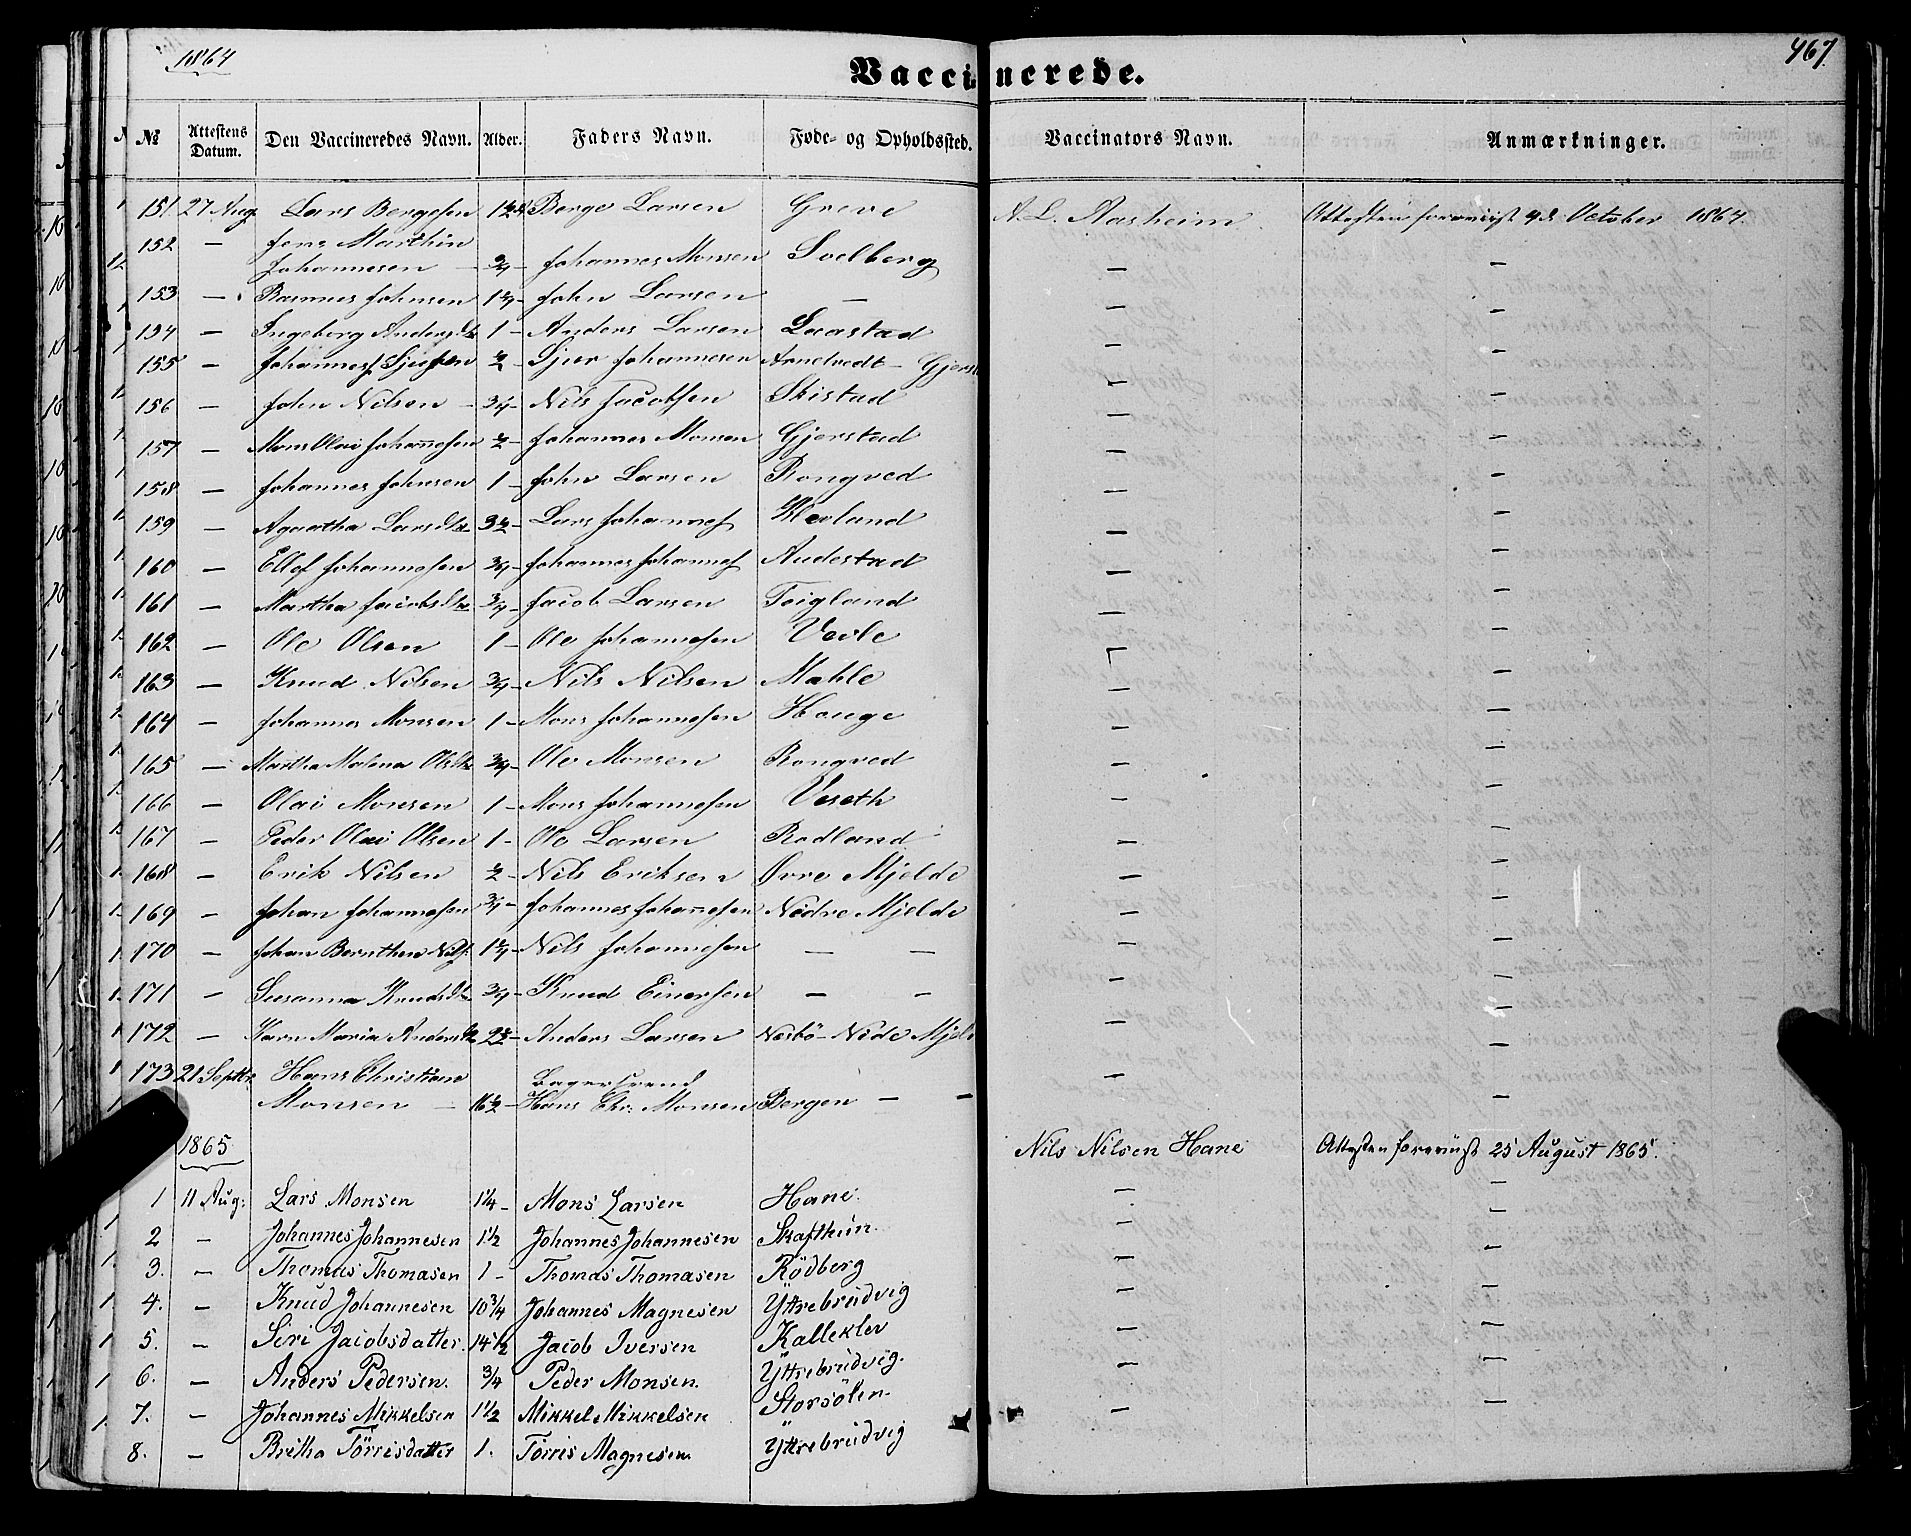 1864
Vaccinerede.
467.
№ Attestens Datum. Den Vaccineredes Navn. Alder. Faders Navn. Føde- og Opholdssted. Vaccinators Navn. Anmærkninger.
151. 27 Aug. Lars Bergesen Berge Larsen Greve A. L. Aasheim Attesten foreviist 4d October 1864.
152 — Jens Marthin
Johannesen — 3/4 — Johannes Monsen Soelberg — —
153 — Rasmus Johnsen 1 1/4 — John Larsen — — —
154 — Ingeborg Andersdtr 1 — Anders Larsen Laastad — —
155 — Johannes Sjursen 1/2 — Sjur Johannesen Arnetvedt — — —
156 — John Nilsen — 3/4 — Nils Jacobsen Skistad — —
157 — Mons Olai Johannesen 1/2 — Johannes Monsen Gjerstad — —
158 — Johannes Johnsen 1 — John Larsen Rongved — —
159 — Agaatha Larsdtr 3 1/2 — Lars Johannes Klevland — —
160 — Ellef Johannesen 3/4 — Johannes Johannes Andestad — —
161 — Martha Jacobsdtr 3/4 — Jacob Larsen Teigland — —
162 — Ole Olsen 1 — Ole Johannesen Vevle — —
163 — Knud Nilsen 3/4 — Nils Nilsen Mahle — —
164 — Johannes Monsen 1 — Mons Johannesen Houge — —
165 — Martha Malena Olsdtr 3/4 — Ole Monsen Rongved — —
166 — Olai Monsen 1 — Mons Johannesen Veseth — —
167 — Peder Olai Olsen 1 — Ole Larsen Rødland — —
168 — Erik Nilsen 1/2 — Nils Eriksen Øvre Mjelde — —
169 — Johan Johannesen 3/4 — Johannes Johannesen Nedre Mjelde — —
170 — Johan Bernthen Nils. 1 1/4 — Nils Johannesen — — — —
171 — Susanna Knudsdtr 3/4 — Knud Einersen — — — —
172 — Karn Maria Andersdtr Anders Larsen Nesbö — Nede Mjeld — —
173 21 Septbr. Hans Christian Bagersvend — —
Monsen — 16 1/2 — Hans Chr: Monsen Bergen — — —
1865 Nils Nilsen Hane Attesten foreviist 25 August 1865.
1 11 Aug: Lars Monsen 1 1/4 — Mons Larsen Hane. — —
2 — Johannes Johannesen 1 1/2 Johannes Johannesen Skafthun. — —
3. — Thomas Thomasen 1 — Thomas Thomasen Rödberg — —
4. — Knud Johannesen 10 3/4 Johannes Magnesen Yttrebrudvig — —
5. — Siri Jacobsdatter. 14 1/2 Jacob Iversen Kalleklev — —
6. — Anders Pedersen. 3/4 Peder Monsen. Yttrebrudvig. — —
7. — Johannes Mikkelsen 1 1/2 Mikkel Mikkelsen Storsölen — —
8. — Britha Törrisdatter 1. Törris Magnesen Yttrebrudvig — —